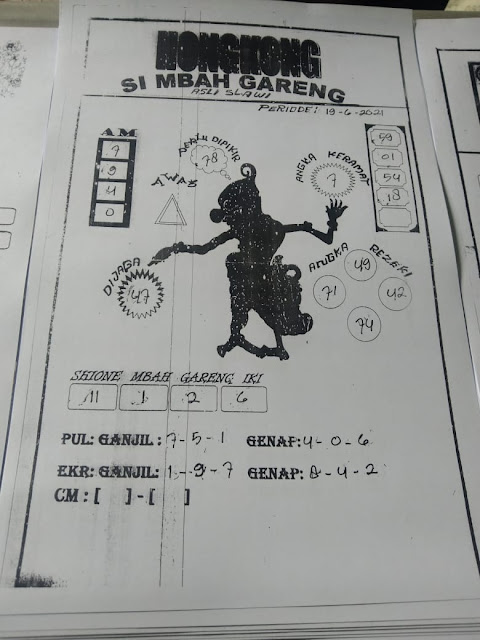 HONGKONG
SI MBAH GARENG
ASLI SLAWI
PERIODE: 19-6-2021
AM
7
9
4
0
PERLU DIPIKIR
78
AWAS
ANGKA KERAMAT
7
59
01
54
18
DIJAGA
47
ANGKA REZEKI
49
71
42
74
SHIONE MBAH GARENG IKI
11 1 2 6
PUL: GANJIL: 7-5-1 GENAP: 4-0-6
EKR: GANJIL: 1-9-7 GENAP: 0-4-2
CM : [ ] - [ ]